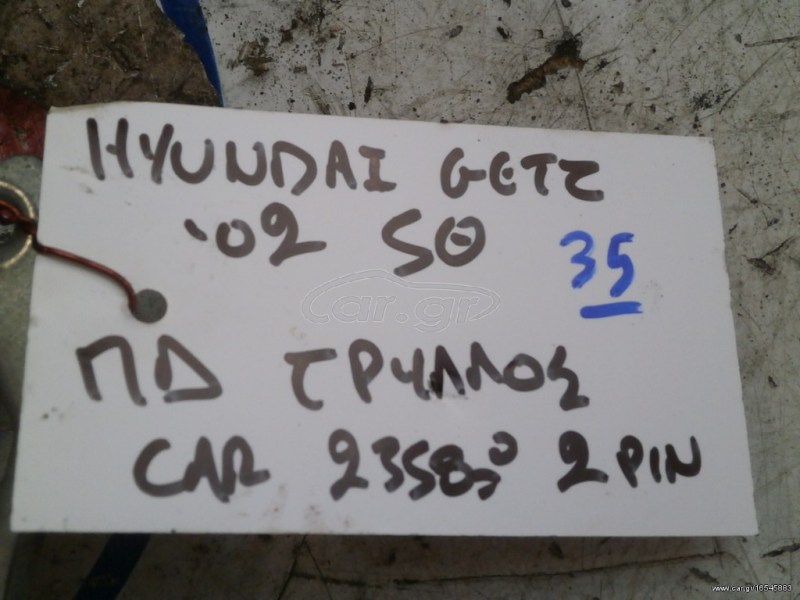 HYUNDAI GETZ
'02 5Θ
35
car.gr
ΠΔ ΤΡΥΛΛΟΣ
CAR 2 PIN
www.car.gr/16545883